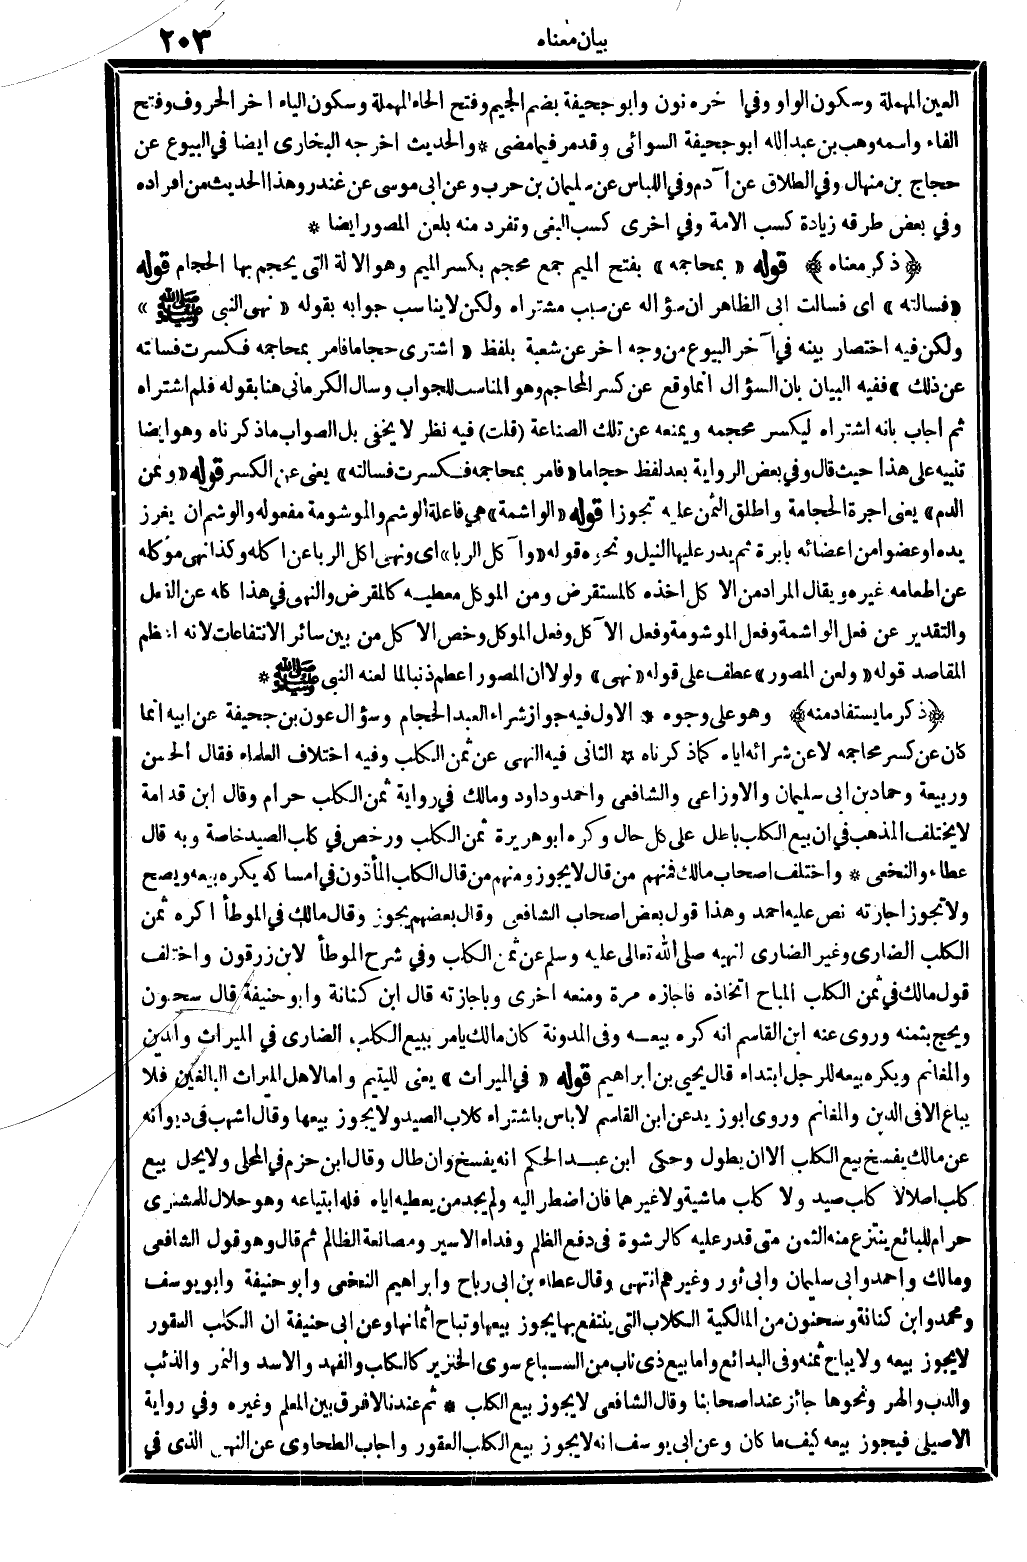 بيان معناه ٢٠٣
العين المهملة وسكون الواو وفي اخره نون وابو جحيفة بضم الجيم وفتح الحاء المهملة وسكون الياء اخر الحروف وفتح
الفاء واسمه وهب بن عبد الله ابو جحيفة السوائى وقد مر فيما مضى * والحديث اخرجه البخارى ايضا في البيوع عن
حجاج بن منهال وفي الطلاق عن آدم وفي اللباس عن سليمان بن حرب وعن ابى موسى عن غندر وهذا الحديث من افراده
وفي بعض طرقه زيادة كسب الامة وفي اخرى كسب البغى وتفرد منه بلعن المصور ايضا *
﴿ ذكر معناه ﴾ قوله « بمحاجمه » بفتح الميم جمع محجم بكسر الميم وهو الالة التى يحجم بها الحجام قوله
« فسالته » اى فسالت ابى الظاهر ان سؤاله عن سبب مشتراه ولكن لا يناسب جوابه بقوله « نهى النبى ﷺ »
ولكن فيه اختصار بينه في آخر البيوع من وجه اخر عن شعبة بلفظ « اشترى حجاما فامر بمحاجمه فكسرت فسالته
عن ذلك » ففيه البيان بان السؤال انما وقع عن كسر المحاجم وهو المناسب للجواب وسال الكرمانى هنا بقوله فلم اشتراه
ثم اجاب بانه اشتراه ليكسر محجمه ويمنعه عن تلك الصناعة (قلت) فيه نظر لا يخفى بل الصواب ماذكرناه وهو ايضا
تنبيه على هذا حيث قال وفي بعض الرواية بعد لفظ حجاما « فامر بمحاجمه فكسرت فسالته » يعنى عن الكسر قوله « وثمن
الدم » يعنى اجرة الحجامة واطلق الثمن عليه تجوزا قوله « الواشمة » هي فاعلة الوشم والموشومة مفعوله والوشم ان يغرز
يده او عضوا من اعضائه بابرة ثم يدر عليها النيل ونحوه قوله « وآكل الربا » اى ونهى اكل الربا عن اكله وكذا نهى موكله
عن اطعامه غيره ويقال المراد من الاكل اخذه كالمستقرض ومن الموكل معطيه كالمقرض والنهى في هذا كله عن الفعل
والتقدير عن فعل الواشمة وفعل الموشومة وفعل الآكل وفعل الموكل وخص الاكل من بين سائر الانتفاعات لانه اعظم
المقاصد قوله « ولعن المصور » عطف على قوله « نهى » ولولا ان المصور اعظم ذنبا لما لعنه النبى ﷺ *
﴿ ذكر ما يستفاد منه ﴾ وهو على وجوه * الاول فيه جواز شراء العبد الحجام وسؤال عون بن جحيفة عن ابيه انما
كان عن كسر محاجمه لا عن شرائه اياه كما ذكرناه * الثانى فيه النهى عن ثمن الكلب وفيه اختلاف العلماء فقال الحسن
وربيعة وحماد بن ابى سليمان والاوزاعى والشافعى واحمد وداود ومالك في رواية ثمن الكلب حرام وقال ابن قدامة
لا يختلف المذهب في ان بيع الكلب باطل على كل حال وكره ابو هريرة ثمن الكلب ورخص في كلب الصيد خاصة وبه قال
عطاء والنخعى * واختلف اصحاب مالك فمنهم من قال لا يجوز ومنهم من قال الكلب المأذون في امساكه يكره بيعه ويصح
ولا تجوز اجارته نص عليه احمد وهذا قول بعض اصحاب الشافعى وقال بعضهم يجوز وقال مالك في الموطأ اكره ثمن
الكلب الضارى وغير الضارى لنهيه صلى الله تعالى عليه وسلم عن ثمن الكلب وفي شرح الموطأ لابن زرقون واختلف
قول مالك في ثمن الكلب المباح اتخاذه فاجازه مرة ومنعه اخرى وباجازته قال ابن كنانة وابو حنيفة قال سحنون
ويحج بثمنه وروى عنه ابن القاسم انه كره بيعه وفى المدونة كان مالك يامر ببيع الكلب الضارى في الميراث والدين
والمغانم ويكره بيعه للرجل ابتداء قال يحيى بن ابراهيم قوله « في الميراث » يعنى لليتيم واما لاهل الميراث البالغين فلا
يباع الا فى الدين والمغانم وروى ابو زيد عن ابن القاسم لا باس باشتراء كلاب الصيد ولا يجوز بيعها وقال اشهب فى ديوانه
عن مالك يفسخ بيع الكلب الا ان يطول وحكى ابن عبد الحكم انه يفسخ وان طال وقال ابن حزم في المحلى ولا يحل بيع
كلب اصلا لا كلب صيد ولا كلب ماشية ولا غيرهما فان اضطر اليه ولم يجد من يعطيه اياه فله ابتياعه وهو حلال للمشترى
حرام للبائع ينتزع منه الثمن متى قدر عليه كالرشوة فى دفع الظلم وفداء الاسير ومصانعة الظالم ثم قال وهو قول الشافعى
ومالك واحمد وابى سليمان وابى ثور وغيرهم انتهى وقال عطاء بن ابى رباح وابراهيم النخعى وابو حنيفة وابو يوسف
ومحمد وابن كنانة وسحنون من المالكية الكلاب التى ينتفع بها يجوز بيعها وتباح اثمانها وعن ابى حنيفة ان الكلب العقور
لا يجوز بيعه ولا يباح ثمنه وفى البدائع واما بيع ذى ناب من السباع سوى الخنزير كالكلب والفهد والاسد والنمر والذئب
والدب والهر ونحوها جائز عند اصحابنا وقال الشافعى لا يجوز بيع الكلب * ثم عندنا لا فرق بين المعلم وغيره وفي رواية
الاصيلى فيجوز بيعه كيف ما كان وعن ابى يوسف انه لا يجوز بيع الكلب العقور واجاب الطحاوى عن النهى الذى في